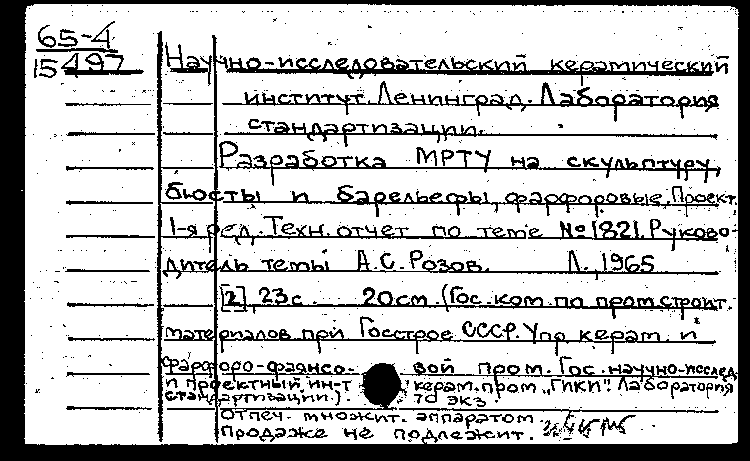 65-4
15497
Научно-исследовательский керамический
институт. Ленинград. Лаборатория
стандартизации.
Разработка МРТУ на скульптуру,
бюсты и барельефы, фарфоровые. Проект.
1-я ред. Техн. отчет по теме № 1821. Руково-
дитель темы А.С. Розов. Л., 1965
[2], 23 с. 20 см. (Гос. ком. по пром. строит.
материалов при Госстрое СССР. Упр керам. и
фарфоро-фаянсо- вой пром. Гос. научно-исслед.
и проектный ин-т керам. пром. „ГИКИ". Лаборатория
стандартизации.). 70 экз
Отпеч. множит. аппаратом
Продаже не подлежит.